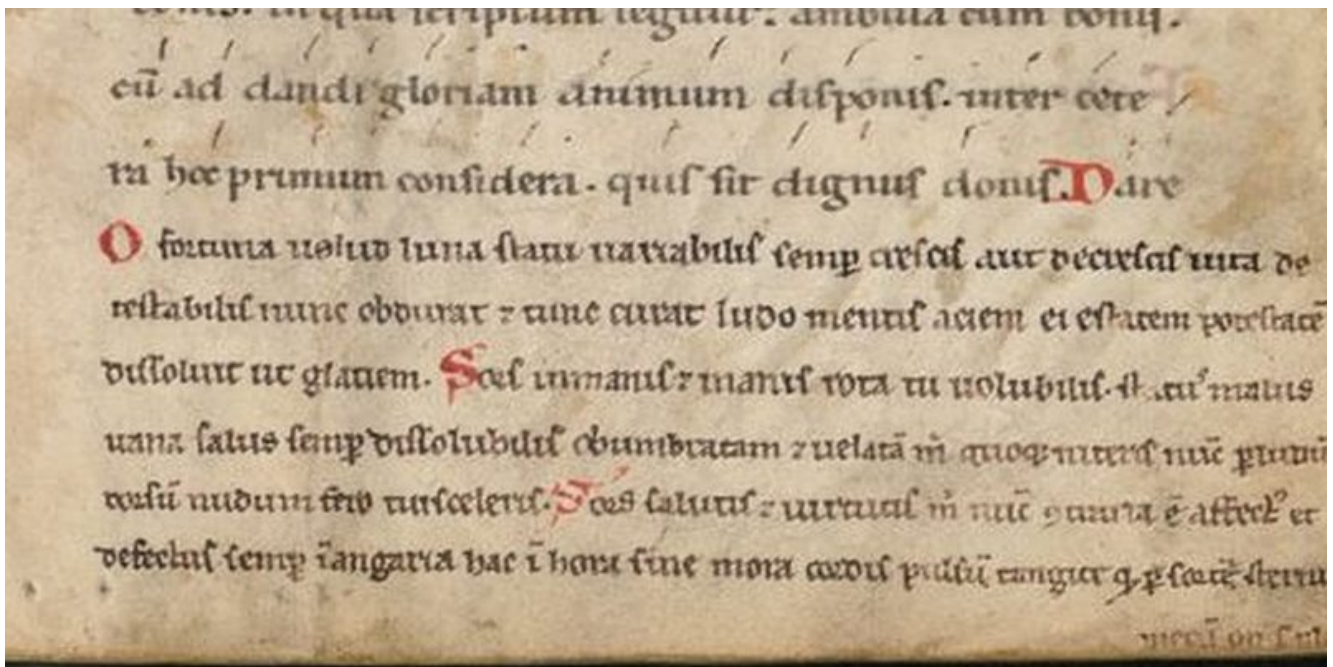 in qua scriptum legitur. ambula cum bonis.
cū ad dandi gloriam animum disponis. inter cete
ra hoc primum considera. quis sit dignus donis. Dare
O fortuna uelud luna statu uariabilis semꝑ crescis aut decrescis uita de
testabilis nunc obdurat ⁊ tunc curat ludo mentis aciem egestatem potestatē
dissoluit ut glaciem. Sors inmanis ⁊ inanis rota tu uolubilis. status malus
uana salus semꝑ dissolubilis obumbratam ⁊ uelatā m̄ quoq niteris nūc ꝑ ludū
dorsū nudum fero tui sceleris. Sors salutis ⁊ uirtutis m̄ nūc ꝯtraria ē affectꝰ et
defectus semꝑ ī angaria hac ī hora sine mora cordis pulsū tangite q ꝑ sortē sternit